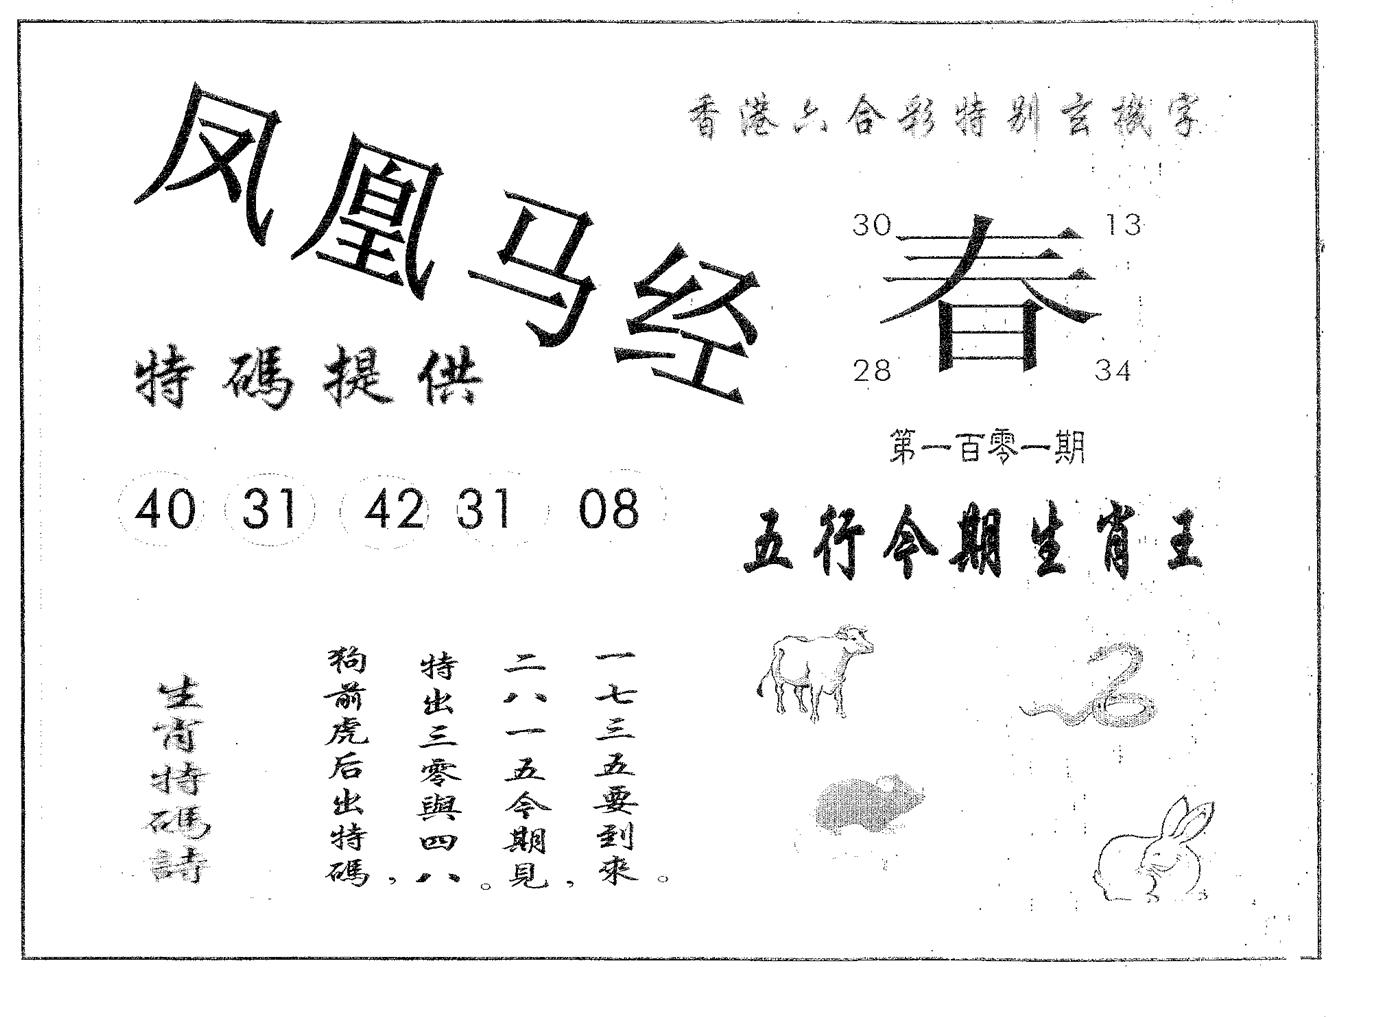 凤凰马经
香港六合彩特别玄機字
30 13
春
28 34
特碼提供
第一百零一期
40 31 42 31 08
五行今期生肖王
生肖特碼詩
狗前虎后出特碼，
特出三零與四八。
二八一五今期見，
一七三五要到來。